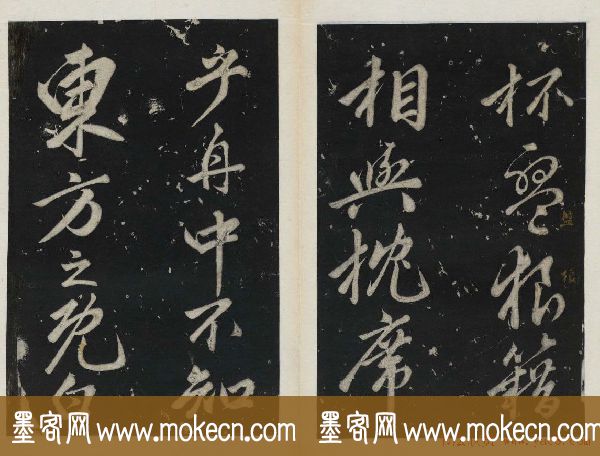 杯盤狼籍
盤
狼
相與枕席
乎舟中不知
東方之既白
墨客网 www.mokecn.com 墨客网 www.mokecn.com